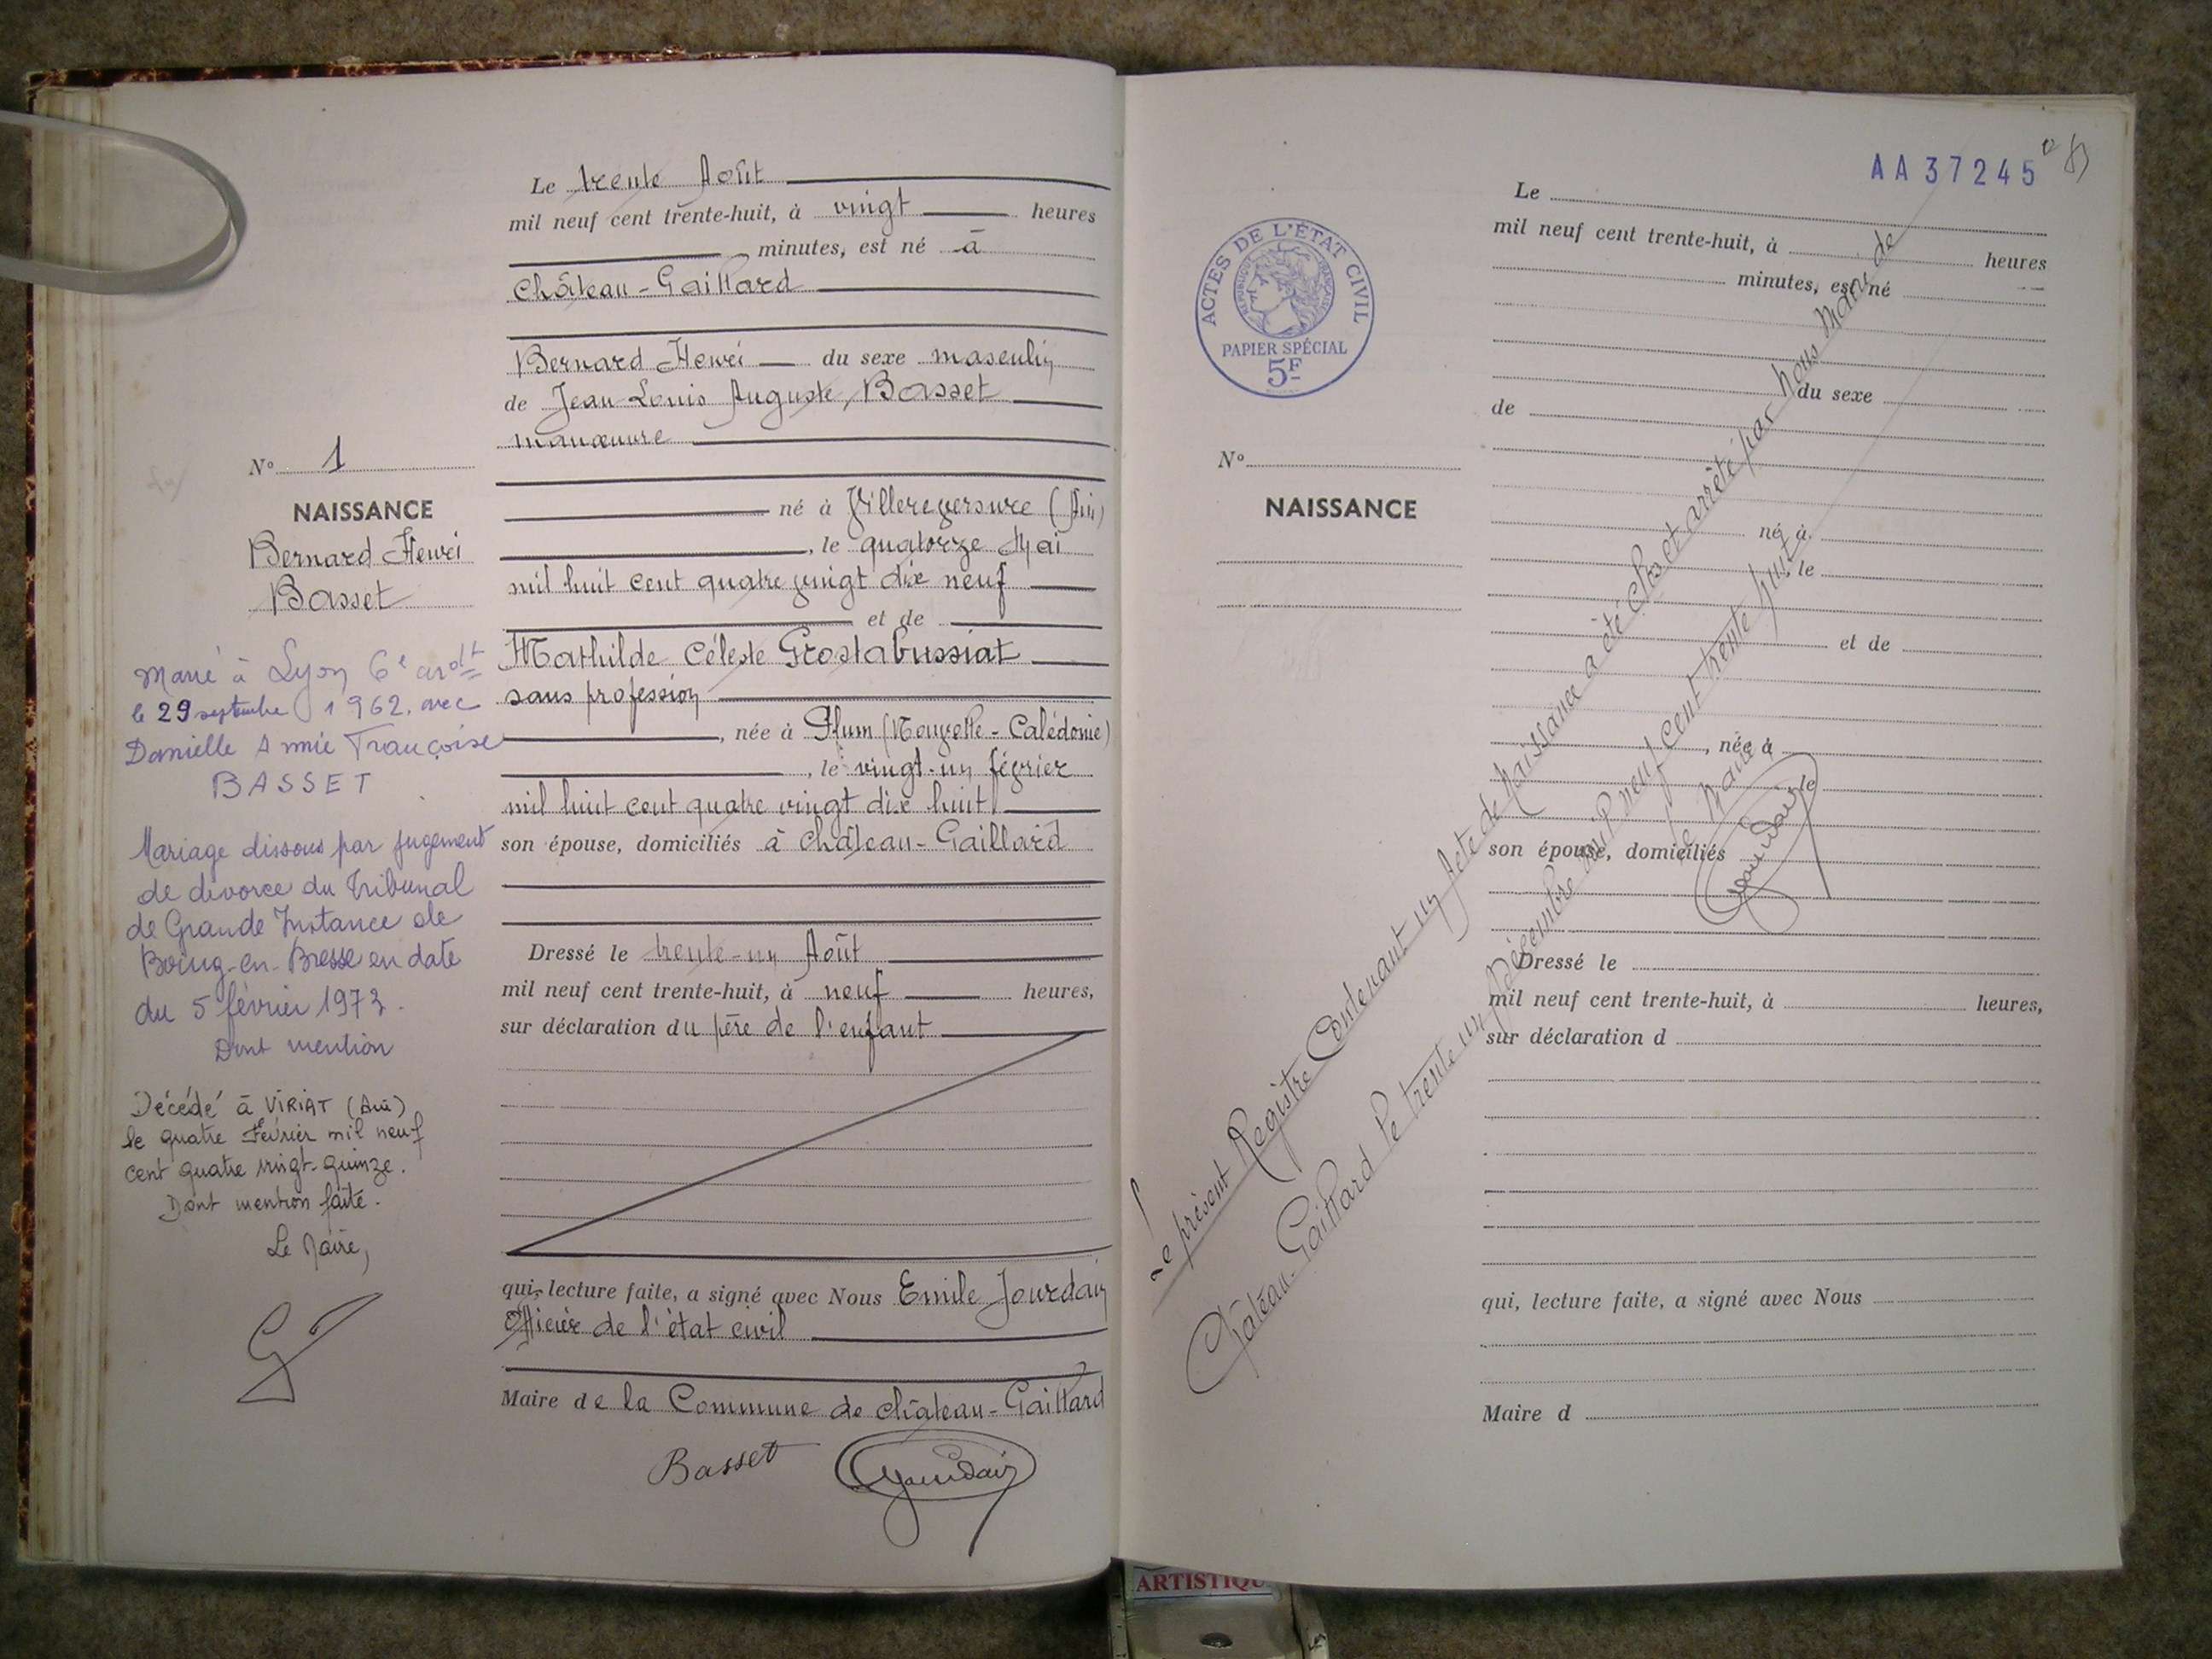 Le trente Août
mil neuf cent trente-huit, à vingt heures
minutes, est né à
Château-Gaillard
Bernard Henri du sexe masculin
de Jean Louis Auguste, Basset
manœuvre
né à Villereversure (Ain)
, le quatorze Mai
mil huit cent quatre vingt dix neuf
et de
Mathilde Céleste Grostabussiat
sans profession
, née à Plum (Nouvelle-Calédonie)
, le vingt-un février
mil huit cent quatre vingt dix huit
son épouse, domiciliés à Château-Gaillard
Dressé le trente-un Août
mil neuf cent trente-huit, à neuf heures,
sur déclaration du père de l'enfant
qui, lecture faite, a signé avec Nous Emile Jourdain
Officier de l'état civil
Maire de la Commune de Château-Gaillard
Basset Jourdain
N° 1
NAISSANCE
Bernard Henri
Basset
Marié à Lyon 6e ardt
le 29 septembre 1962. avec
Danielle Annie Françoise
BASSET
Mariage dissous par jugement
de divorce du Tribunal
de Grande Instance de
Bourg-en-Bresse en date
du 5 février 1973.
Dont mention
Décédé à VIRIAT (Ain)
le quatre Février mil neuf
cent quatre vingt-quinze.
Dont mention faite.
Le Maire,
AA 37245
ACTES DE L'ÉTAT CIVIL
RÉPUBLIQUE FRANÇAISE
PAPIER SPÉCIAL
5F
N°
NAISSANCE
Le
mil neuf cent trente-huit, à heures
minutes, est né
du sexe
de
né à
, le
et de
, née à
, le
son épouse, domiciliés
Dressé le
mil neuf cent trente-huit, à heures,
sur déclaration d
qui, lecture faite, a signé avec Nous
Maire d
Le présent Registre Contenant un Acte de Naissance a été Clos et arrêté par nous Maire de
Château-Gaillard le trente un Décembre mil neuf cent trente huit
Le Maire
Jourdain
ARTISTIQU